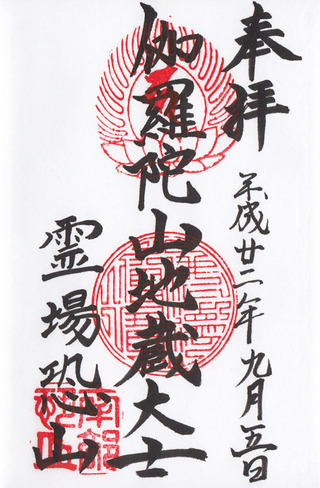 奉拝
平成廿二年九月五日
伽羅陀山地蔵大士
霊場恐山